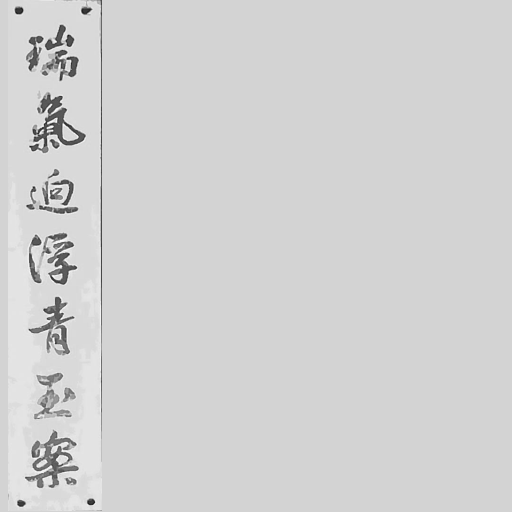 瑞氣迥浮青玉案